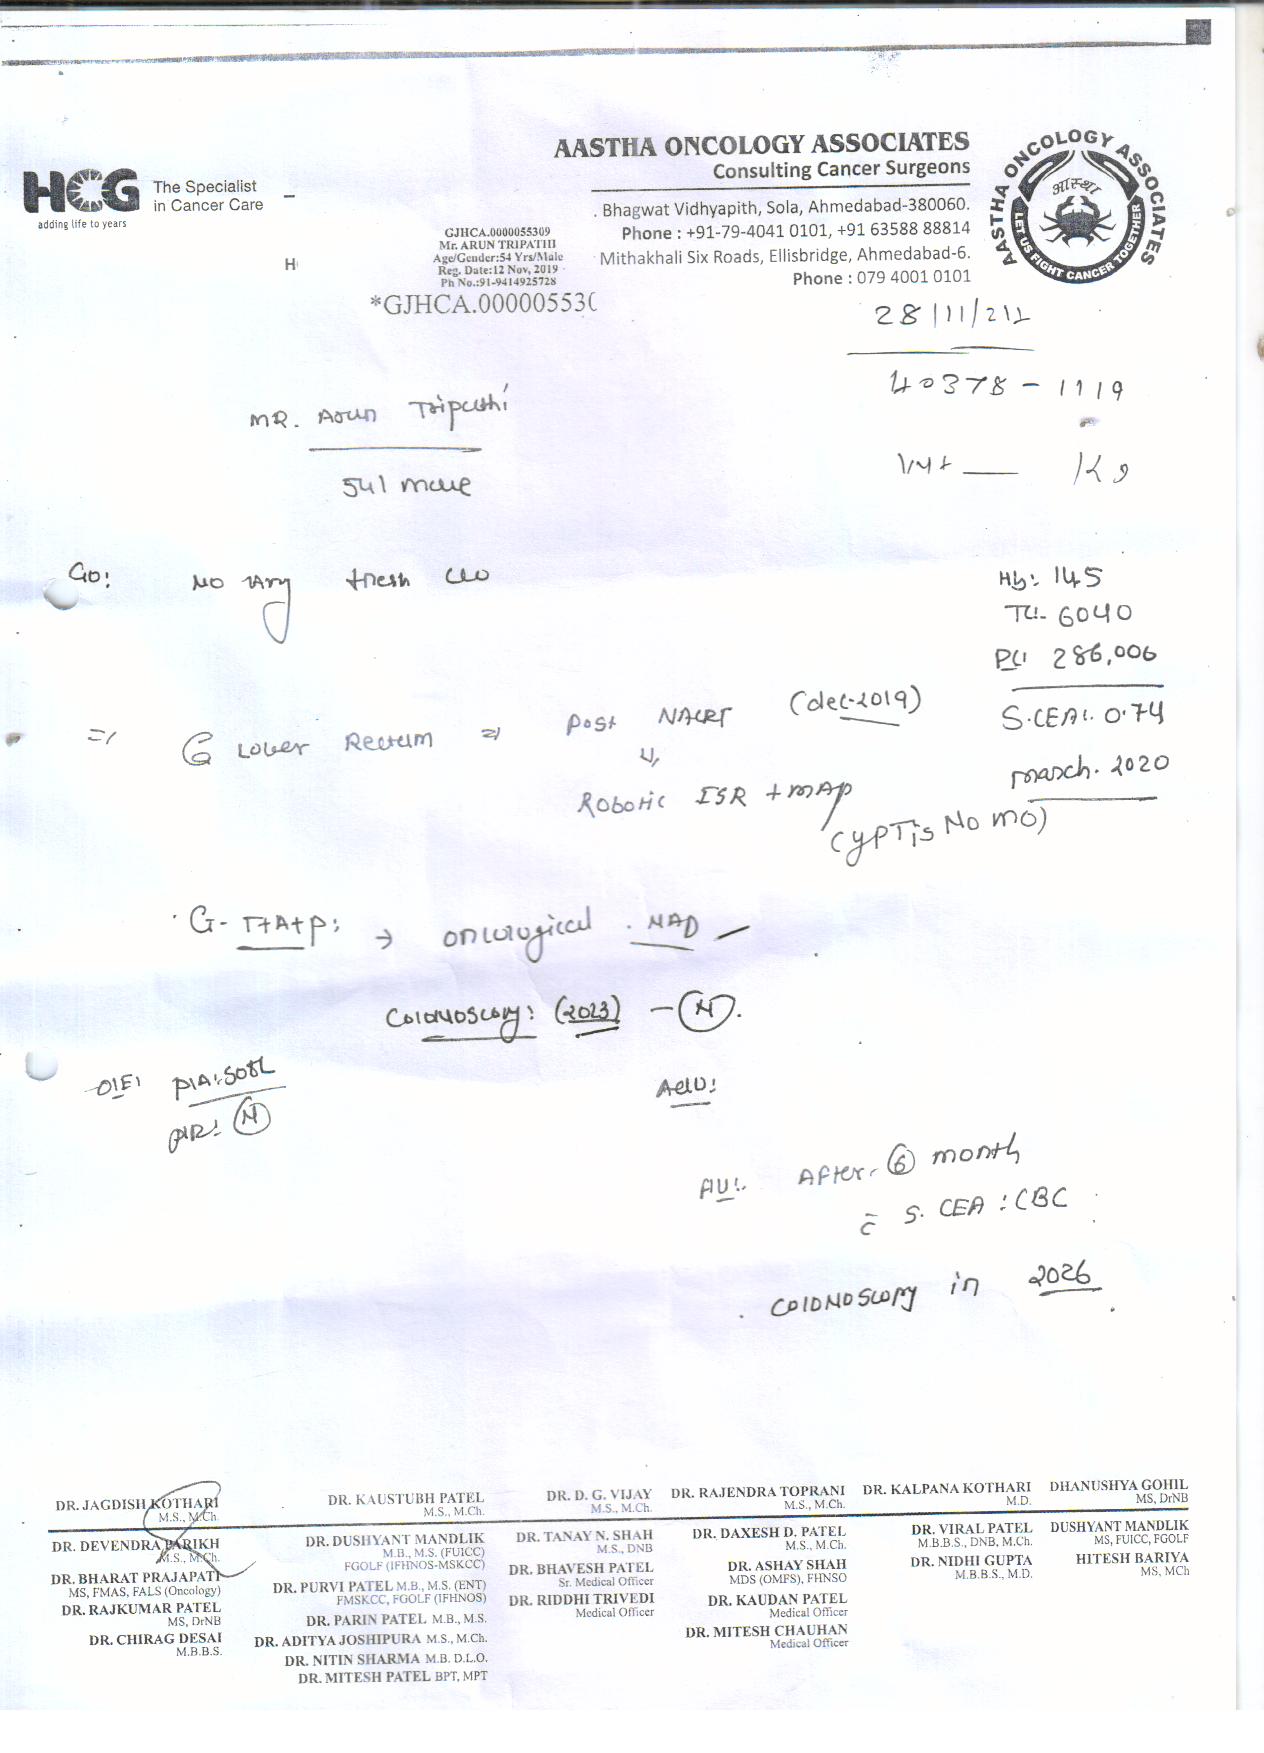 AASTHA ONCOLOGY ASSOCIATES
Consulting Cancer Surgeons
HCG The Specialist in Cancer Care
adding life to years
Bhagwat Vidhyapith, Sola, Ahmedabad-380060.
Phone : +91-79-4041 0101, +91 63588 88814
Mithakhali Six Roads, Ellisbridge, Ahmedabad-6.
Phone : 079 4001 0101
AASTHA ONCOLOGY ASSOCIATES
आस्था
LET US FIGHT CANCER TOGETHER
GJHCA.0000055309
Mr. ARUN TRIPATHI
Age/Gender:54 Yrs/Male
Reg. Date:12 Nov, 2019
Ph No.:91-9414925728
H
*GJHCA.00000553
28/11/
40378 - 1119
MR. Arun Tripathi
Kg
54/ male
No any fresh c/o
Hb: 145
TC- 6040
PC: 286,006
S.CEA: 0.74
March. 2020
Lower Rectum => Post NACRT (dec-2019)
Robotic ISR + MAP
(ypTis N0 M0)
T+A+P: → oncological . NAD
Colonoscopy: (2023) - (N).
O/E: P/A: Soft
P/R: (N)
Adv:
F/U: After (6) month
c̄ S. CEA : CBC
Colonoscopy in 2026
DR. JAGDISH KOTHARI
M.S., M.Ch.
DR. KAUSTUBH PATEL
M.S., M.Ch.
DR. D. G. VIJAY
M.S., M.Ch.
DR. RAJENDRA TOPRANI
M.S., M.Ch.
DR. KALPANA KOTHARI
M.D.
DHANUSHYA GOHIL
MS, DrNB
DR. DEVENDRA PARIKH
M.S., M.Ch.
DR. BHARAT PRAJAPATI
MS, FMAS, FALS (Oncology)
DR. RAJKUMAR PATEL
MS, DrNB
DR. CHIRAG DESAI
M.B.B.S.
DR. DUSHYANT MANDLIK
M.B., M.S. (FUICC)
FGOLF (IFHNOS-MSKCC)
DR. PURVI PATEL M.B., M.S. (ENT)
FMSKCC, FGOLF (IFHNOS)
DR. PARIN PATEL M.B., M.S.
DR. ADITYA JOSHIPURA M.S., M.Ch.
DR. NITIN SHARMA M.B. D.L.O.
DR. MITESH PATEL BPT, MPT
DR. TANAY N. SHAH
M.S., DNB
DR. BHAVESH PATEL
Sr. Medical Officer
DR. RIDDHI TRIVEDI
Medical Officer
DR. DAXESH D. PATEL
M.S., M.Ch.
DR. ASHAY SHAH
MDS (OMFS), FHNSO
DR. KAUDAN PATEL
Medical Officer
DR. MITESH CHAUHAN
Medical Officer
DR. VIRAL PATEL
M.B.B.S., DNB, M.Ch.
DR. NIDHI GUPTA
M.B.B.S., M.D.
DUSHYANT MANDLIK
MS, FUICC, FGOLF
HITESH BARIYA
MS, MCh